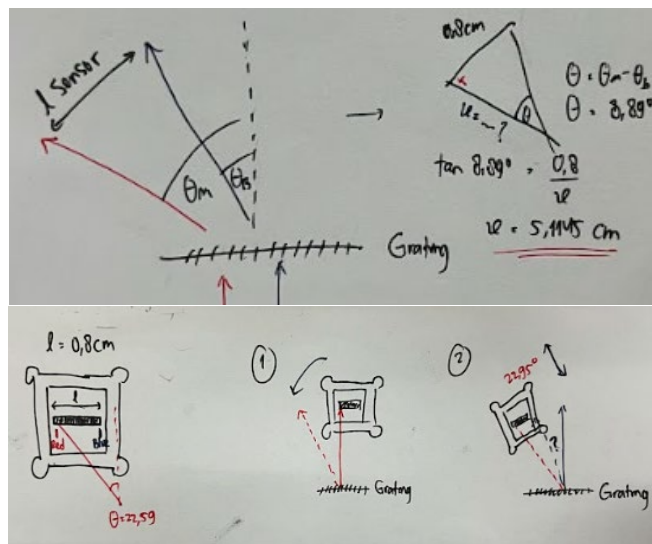 l sensor
θm
θb
Grating
0,8cm
θ
θ = θm - θb
θ = 8,89°
tan 8.89° = 0,8
x
x = 5,1145 cm
l = 0,8cm
l
Red
Blue
θ=22,59
1
Grating
2
22,95°
?
Grating